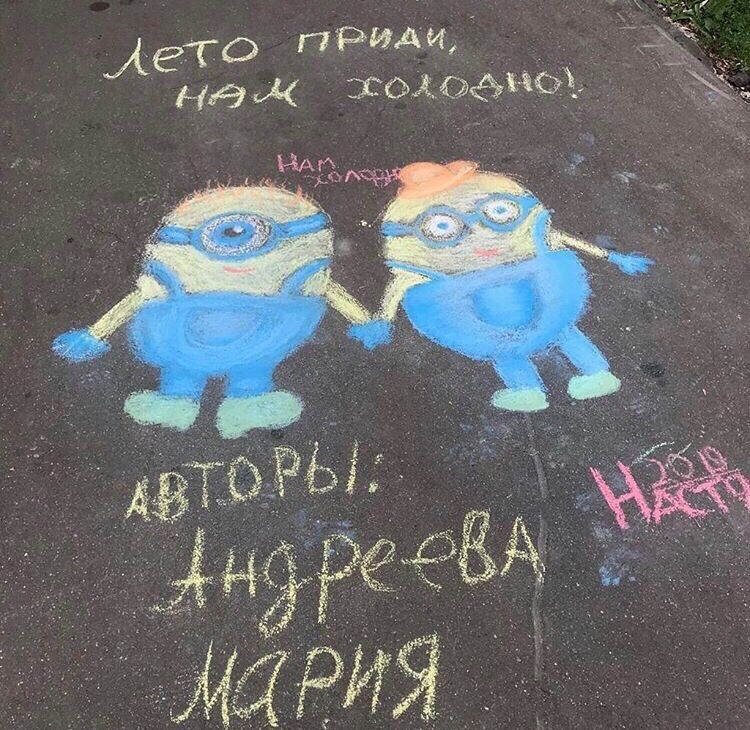 Лето приди,
нам холодно!
Нам
холодн
Авторы:
Андреева
Мария
2010
Настя